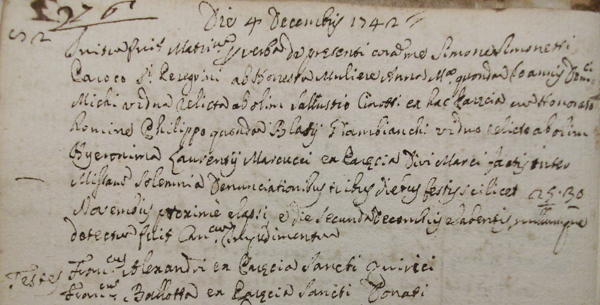 1376 Die 4 Decembris 1742
52 Initu fuit Matrim.m p verba de presenti cora me Simone Simonetti
Paroco S. Peregrini ab Honesta Muliere Anna M.a quonda Joannis Dom.ci
Michi vidua relicta ab olim Sallustio Cinotti ex hac Parecia cum Honorato
Homine Philippo quonda Blasij Giambianchi viduo relicto ab olim
Hyeronima Laurentij Marcucci ex Parecia Divi Marci factis inter
Missaru Solemnia Denunciationibus tribus diebus festis scilicet 25. 30
Novembris proxime elapsi e die secunda Decembris cadentis
detectum fuit Can.cum Impedimentum
Testes Fran.cus Alexandri ex Parecia Sancti Quirici
Fran.cus Ballotta ex Parecia Sancti Donati